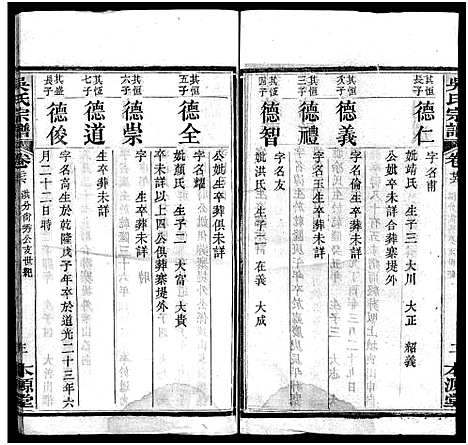 吳氏宗譜
本源堂
其恒長子
德仁
字名甫
妣靖氏 生子三 大川 大正 紹義
公妣生卒未詳合葬寨堤外
其恒次子
德義
字名倫生卒葬未詳
其恒三子
德禮
字名 生卒葬未詳
其恒四子
德智
字名友
妣洪氏 生子二 在義 大成
公妣生卒葬俱未詳
其恒五子
德全
字名耀
妣顏氏 生子二 大富 大貴
生卒未詳以上四公俱葬寨堤外
其恒六子
德崇
字 生卒葬未詳
其恒七子
德道
生卒葬未詳
其盛長子
德俊
字名高生於乾隆戊子年卒於道光二十三年六
月二十二日時
吳氏宗譜
淇分尚秀公支世紀
三 本源堂